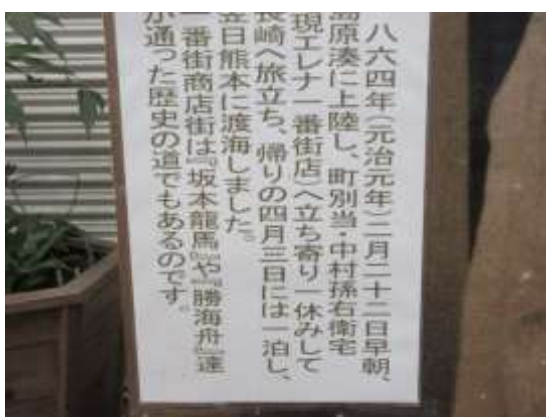 八六四年（元治元年）二月二十二日早朝、
島原湊に上陸し、町別当・中村孫右衛宅
現エレナ一番街店）へ立ち寄り一休みして
長崎へ旅立ち、帰りの四月三日には一泊し、
翌日熊本に渡海しました。
一番街商店街は『坂本龍馬』や『勝海舟』達
が通った歴史の道でもあるのです。